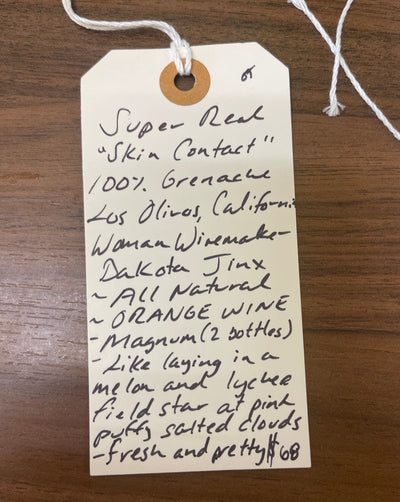 Super Real
"Skin Contact"
100% Grenache
Los Olivos, California
Woman Winemaker-
Dakota Jinx
~ All Natural
~ ORANGE WINE
- Magnum (2 bottles)
- Like laying in a
melon and lychee
field star at pink
puffy salted clouds
- fresh and pretty $68